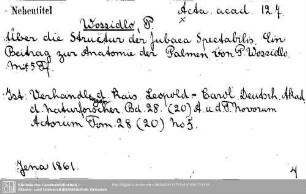 Nebentitel
Acta. acad. 127.
x
Wossidlo, P.
Über die Structur der Jubaea Spectabilis. Ein
Beitrag zur Anatomie der Palmen von P. Wossidlo
Ist: Verhandlg. d. Kais. Leopold-Carol. Deutsch. Akad.
d. Naturforscher Bd. 28. (20) A. u. d. T. Novorum
Actorum Tom. 28 (20) No 5.
Jena 1861.